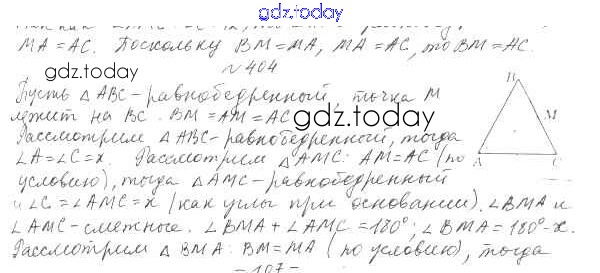 gdz.today
MA = AC. Поскольку BM = MA, MA = AC, то BM = AC.
gdz.today
№404
Пусть △ABC - равнобедренный, точка M
лежит на BC. BM = AM = AC
gdz.today
Рассмотрим △ABC - равнобедренный, тогда
∠A = ∠C = x. Рассмотрим △AMC: AM = AC (по
условию), тогда △AMC - равнобедренный
и ∠C = ∠AMC = x (как углы при основании). ∠BMA и
∠AMC - смежные. ∠BMA + ∠AMC = 180°; ∠BMA = 180° - x.
Рассмотрим △BMA: BM = MA (по условию), тогда
B
M
A
C
- 107 -
gdz.today